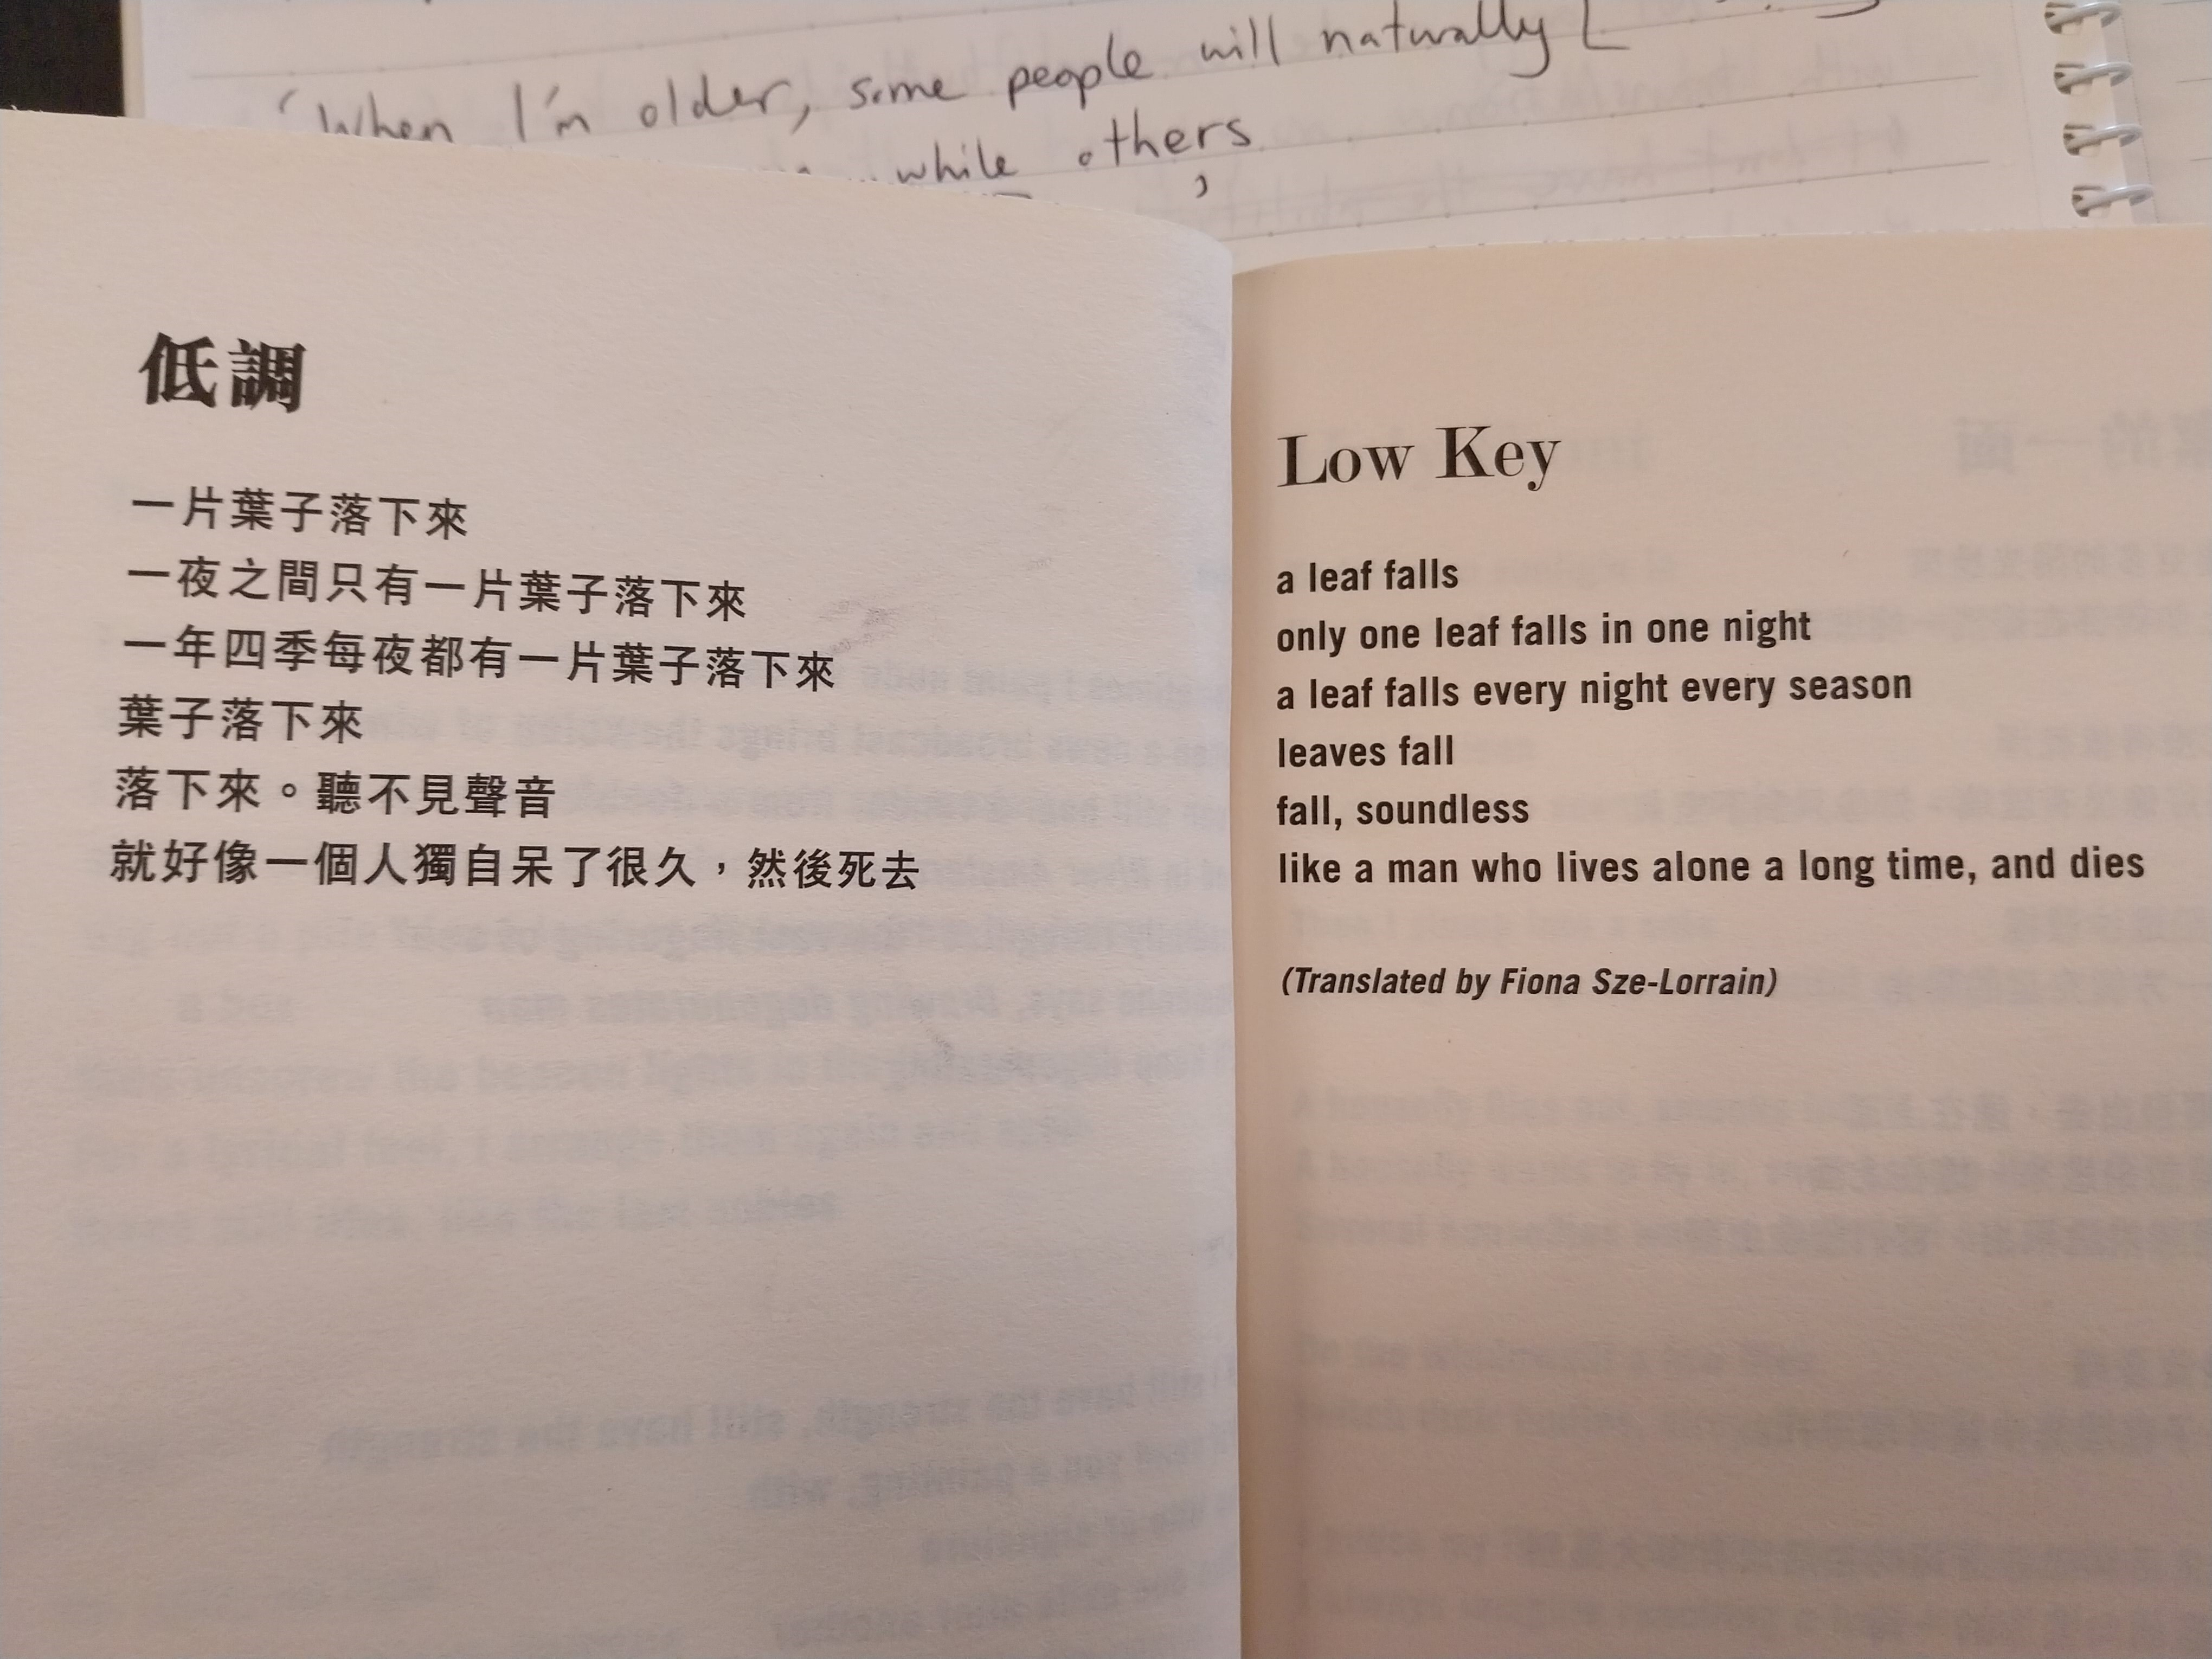 'When I'm older, some people will naturally
while others,
低調
一片葉子落下來
一夜之間只有一片葉子落下來
一年四季每夜都有一片葉子落下來
葉子落下來
落下來。聽不見聲音
就好像一個人獨自呆了很久，然後死去
Low Key
a leaf falls
only one leaf falls in one night
a leaf falls every night every season
leaves fall
fall, soundless
like a man who lives alone a long time, and dies
(Translated by Fiona Sze-Lorrain)